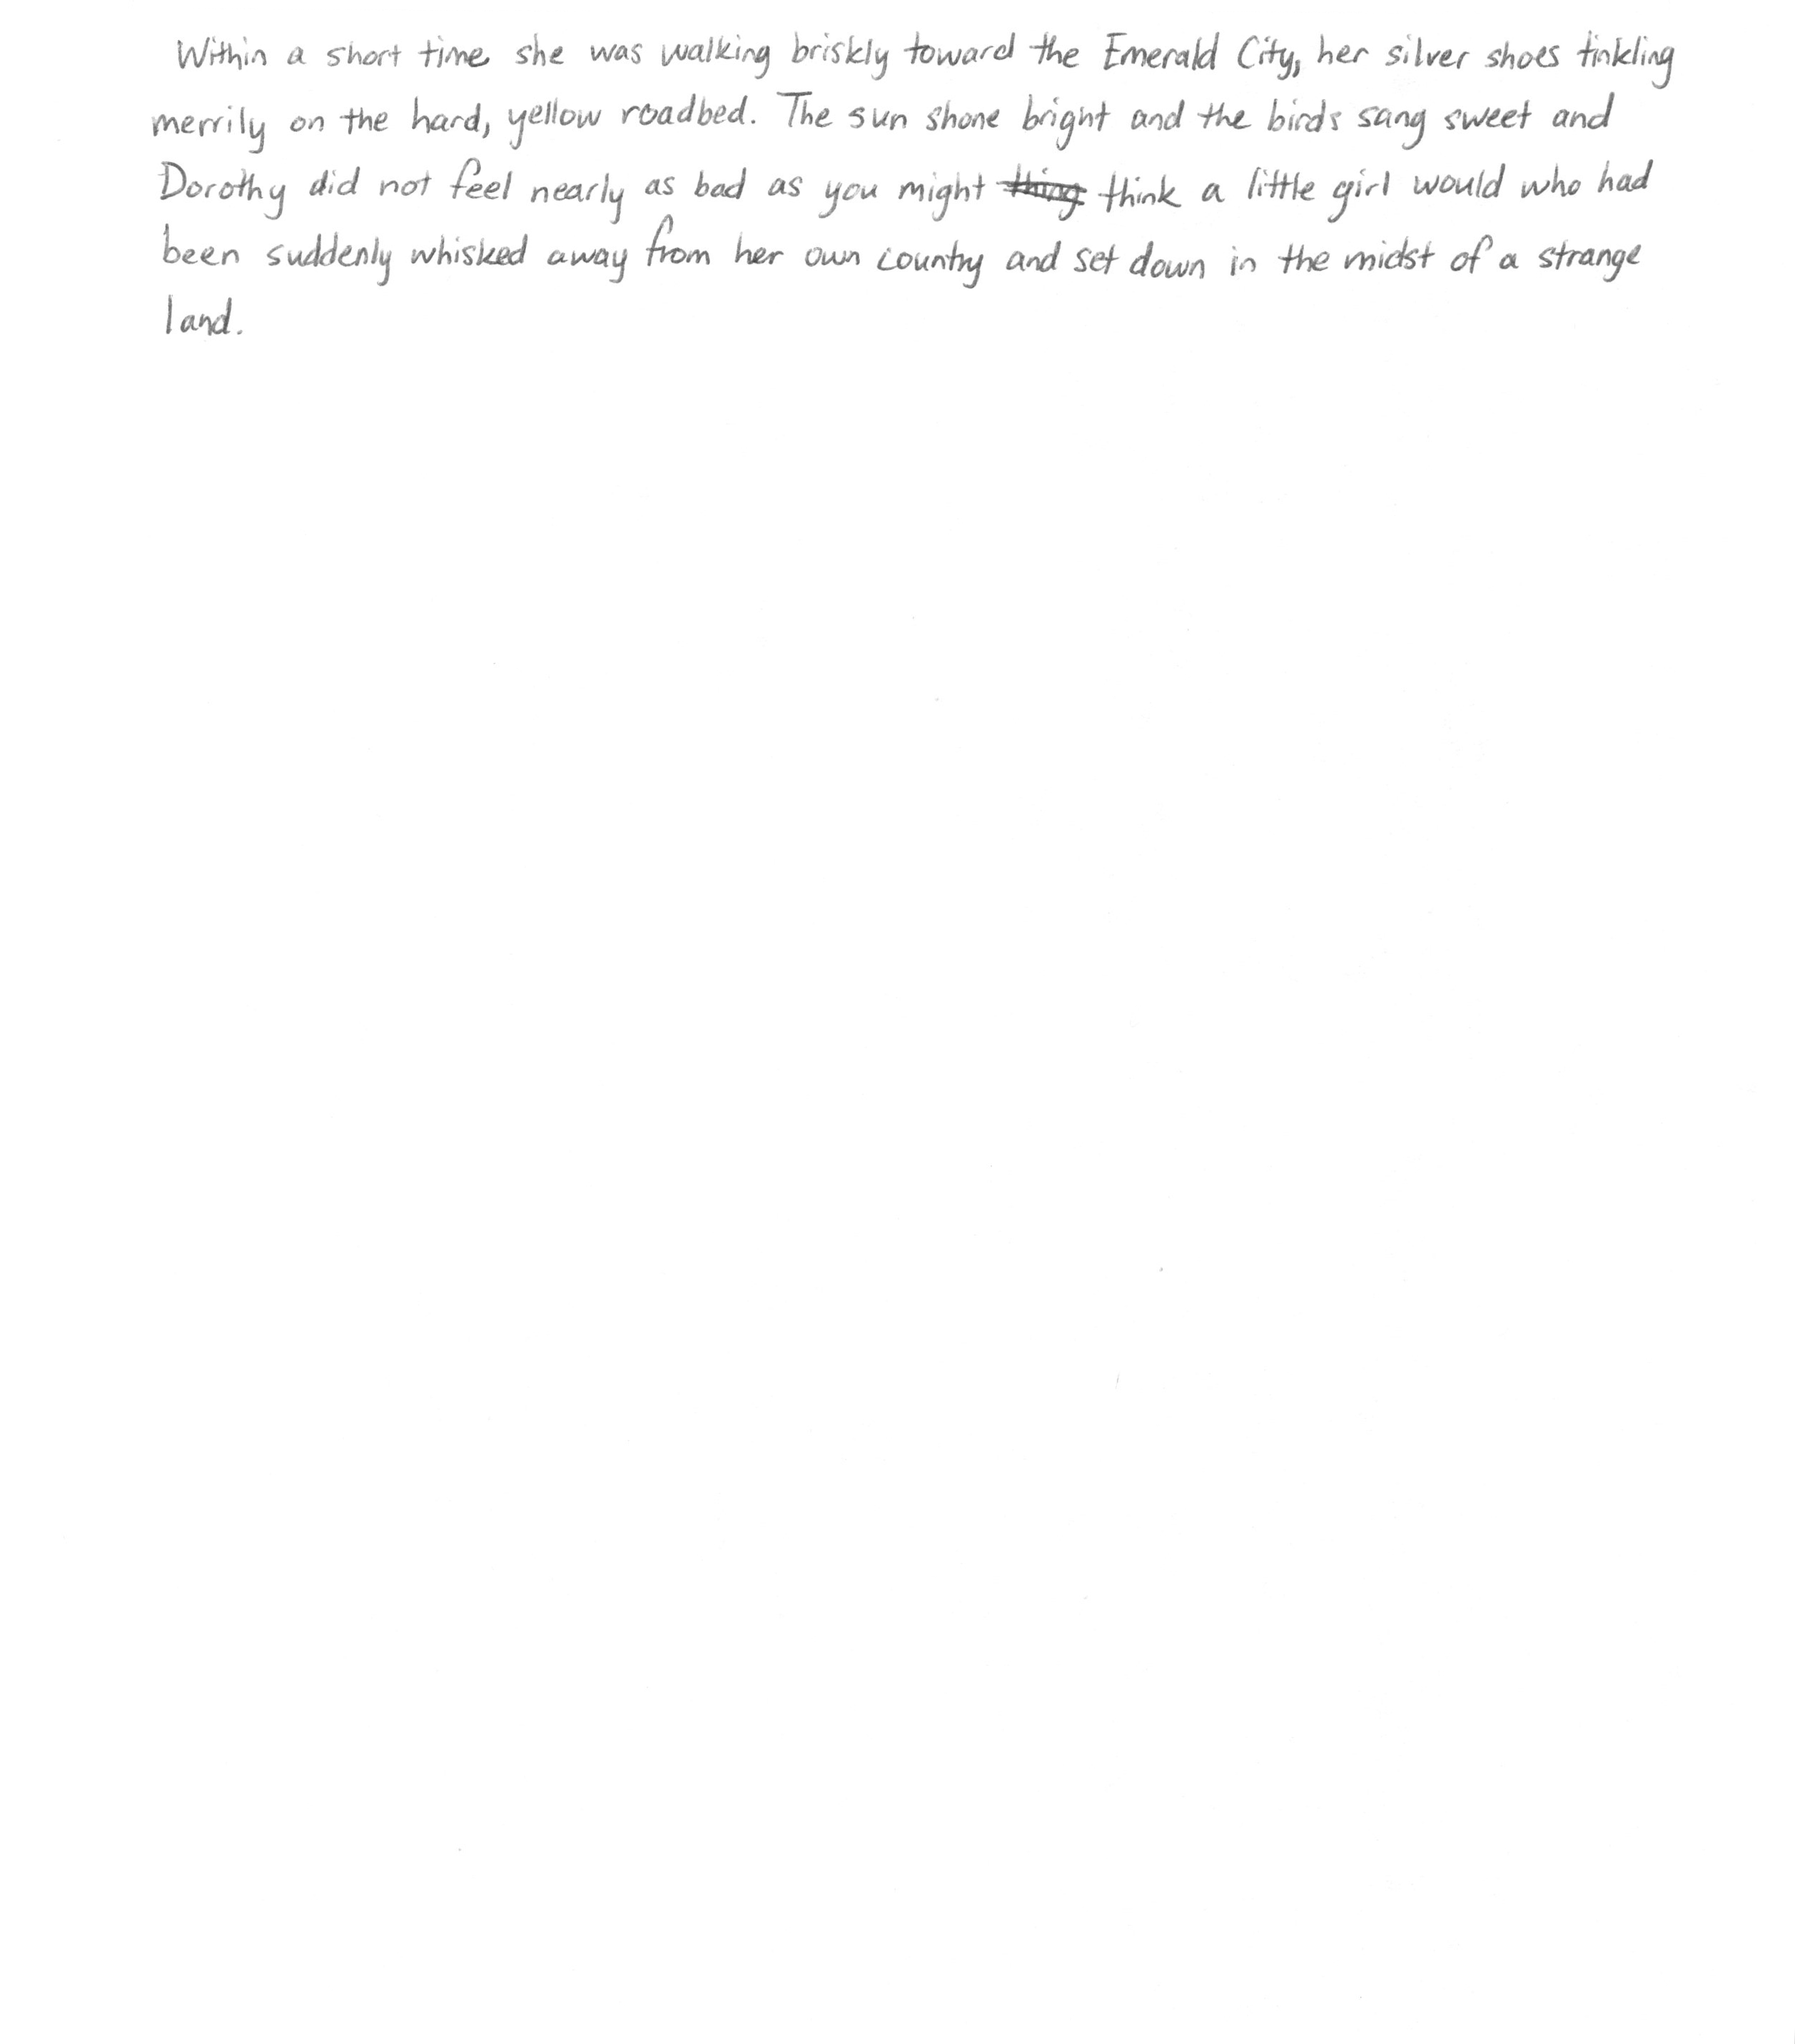 Within a short time she was walking briskly toward the Emerald City, her silver shoes tinkling
merrily on the hard, yellow roadbed. The sun shone bright and the birds sang sweet and
Dorothy did not feel nearly as bad as you might thing think a little girl would who had
been suddenly whisked away from her own country and set down in the midst of a strange
land.